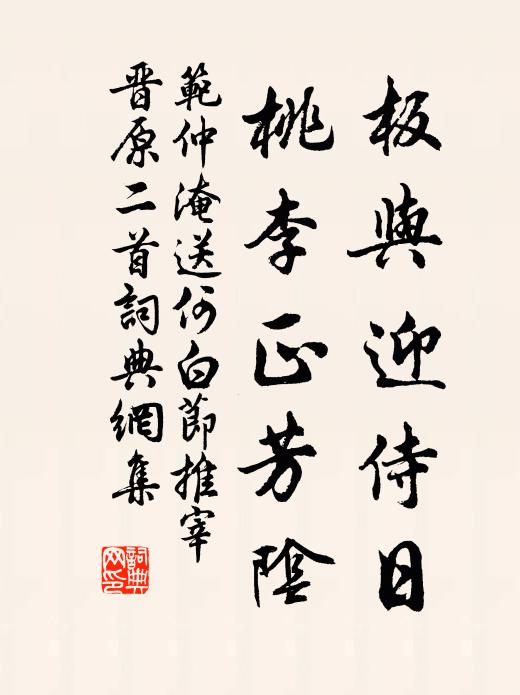 板輿迎侍日
桃李正芳陰
範仲淹送何白節推宰
晉原二首詞典網集
詞典
网印